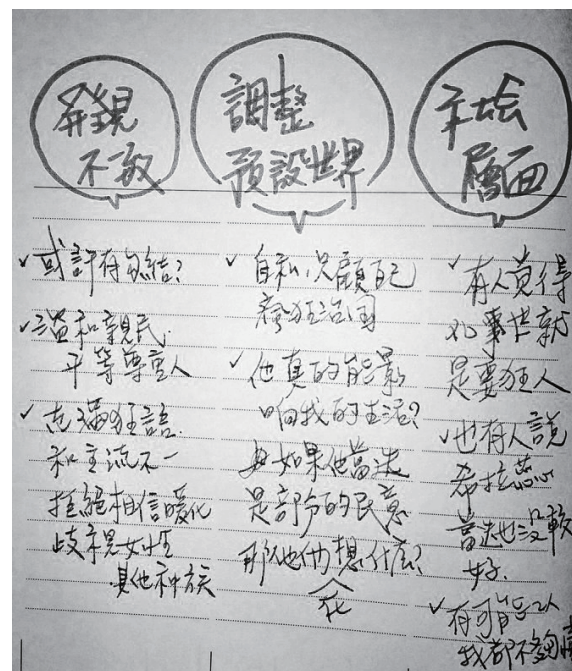 發現
不敢
✓ 或許有勾結?
✓ 溫和親民.
平等尊重人
✓ 充滿狂語.
和主流不一
拒絕相信暖化
歧視女性
其他种族
調整
預設世界
✓ 自私.只顧自己
瘋狂治国
✓ 他真的能影
响我的生活?
如果他當选
是部分的民意
那他们想什麼?
在
社会
層面
✓ 有人覺得
亂世就
是要狂人
✓ 也有人說
希拉蕊
當选也沒較
好.
✓ 有可能2人
我都不夠